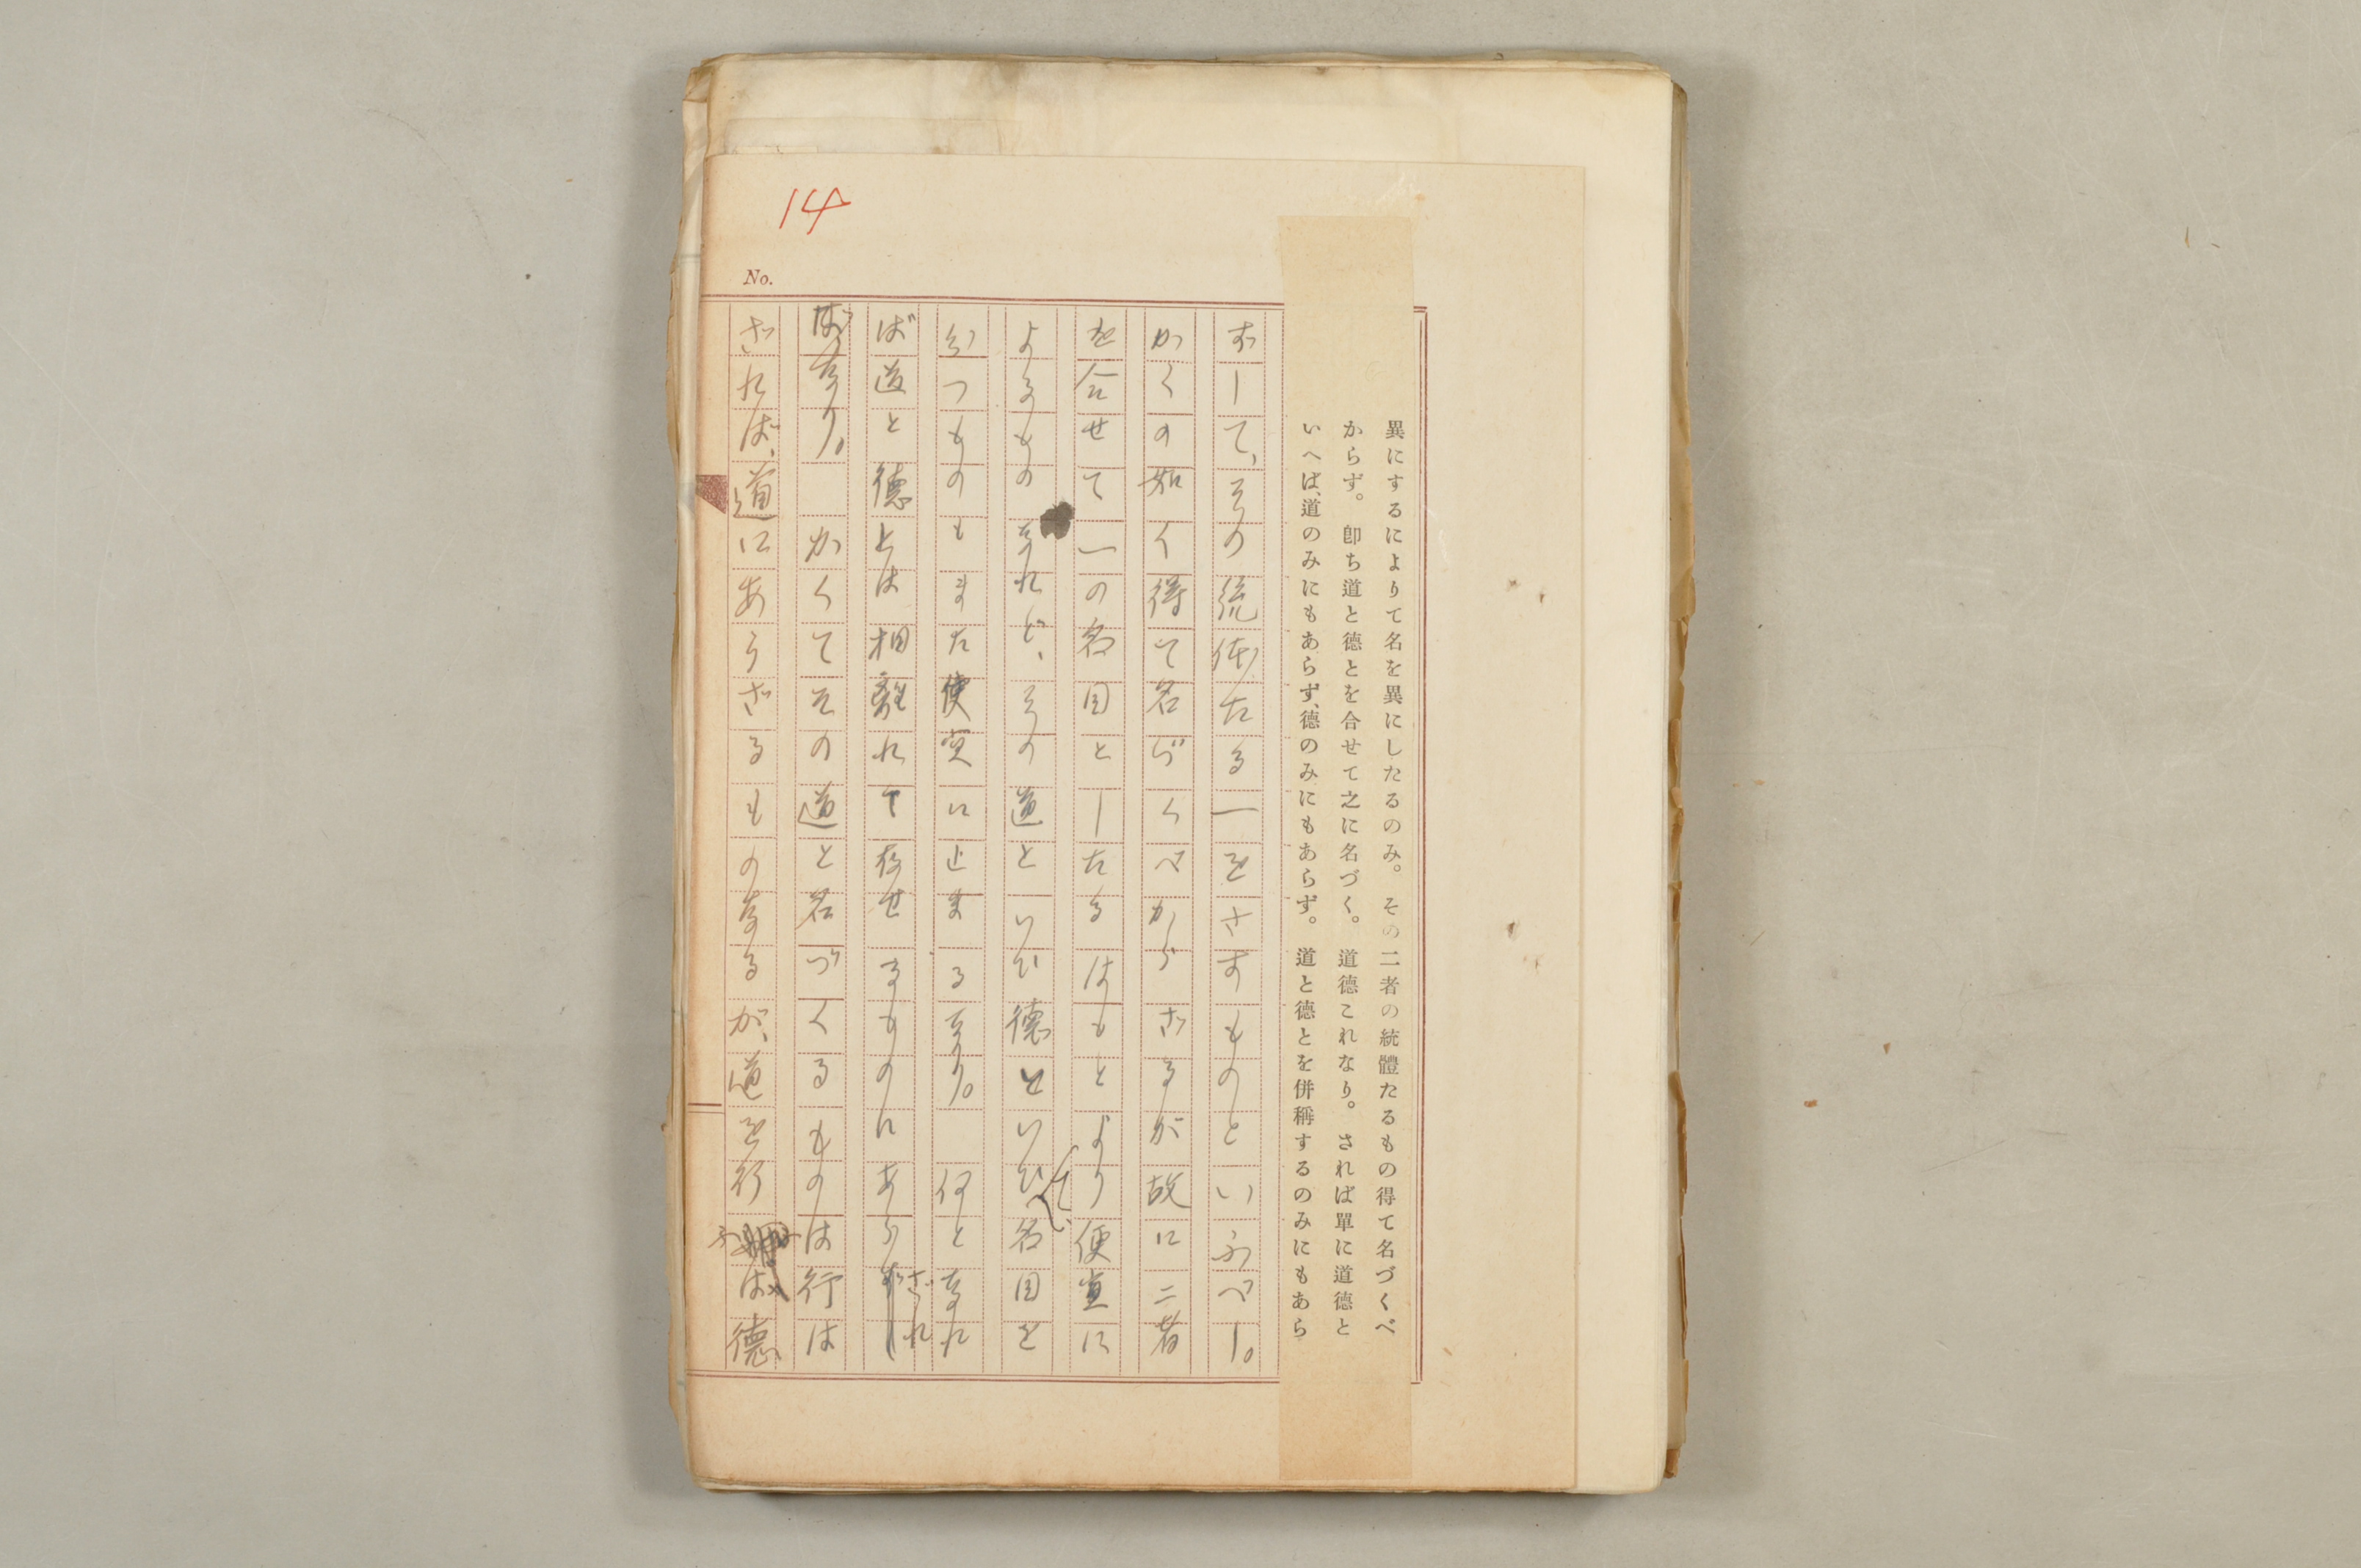 14
No.
異にするによりて名を異にしたるのみ。その二者の統體たるもの得て名づくべ
からず。卽ち道と德とを合せて之に名づく。道德これなり。されば單に道德と
いへば、道のみにもあらず、德のみにもあらず。道と德とを併稱するのみにもあら
ずして、その統体たる一をさすものといふべし。
かくの如く得て名づくべからざるが故に二者
を合せて一の名目としたるはもとより便宜に
よるものなれど、その道といひ德といひて名目を
分つものもまた便宜に止まるなり。何となれ
ば道と德とは相離れて存せるものにあらざれ
ばなり。かくてその道と名づくるものは行は
ざれば、道にあらざるものなるが、道を行ふは德